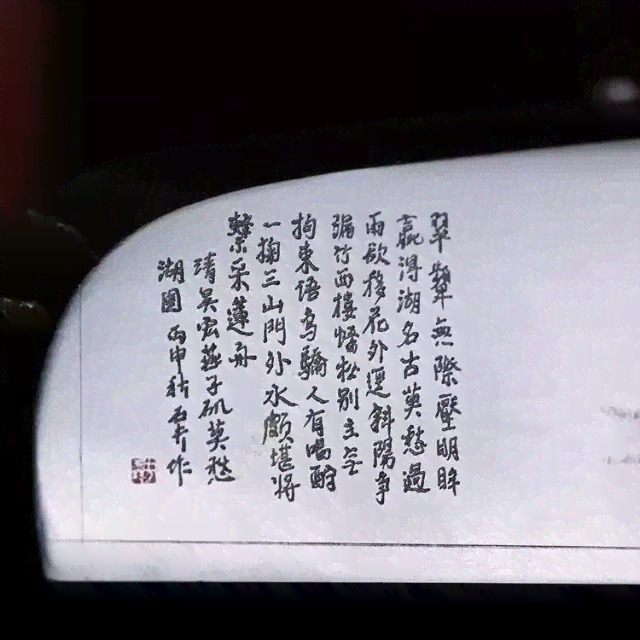 翠顰無際壓明眸
贏得湖名古莫愁過
雨欲移花外逕斜陽爭
漏竹西樓松別主无
拘束語鳥驕人有唱酬
一掬三山門外水頗堪將
繫采蓮舟
清吳宏燕子矶莫愁
湖圖 丙申秋作